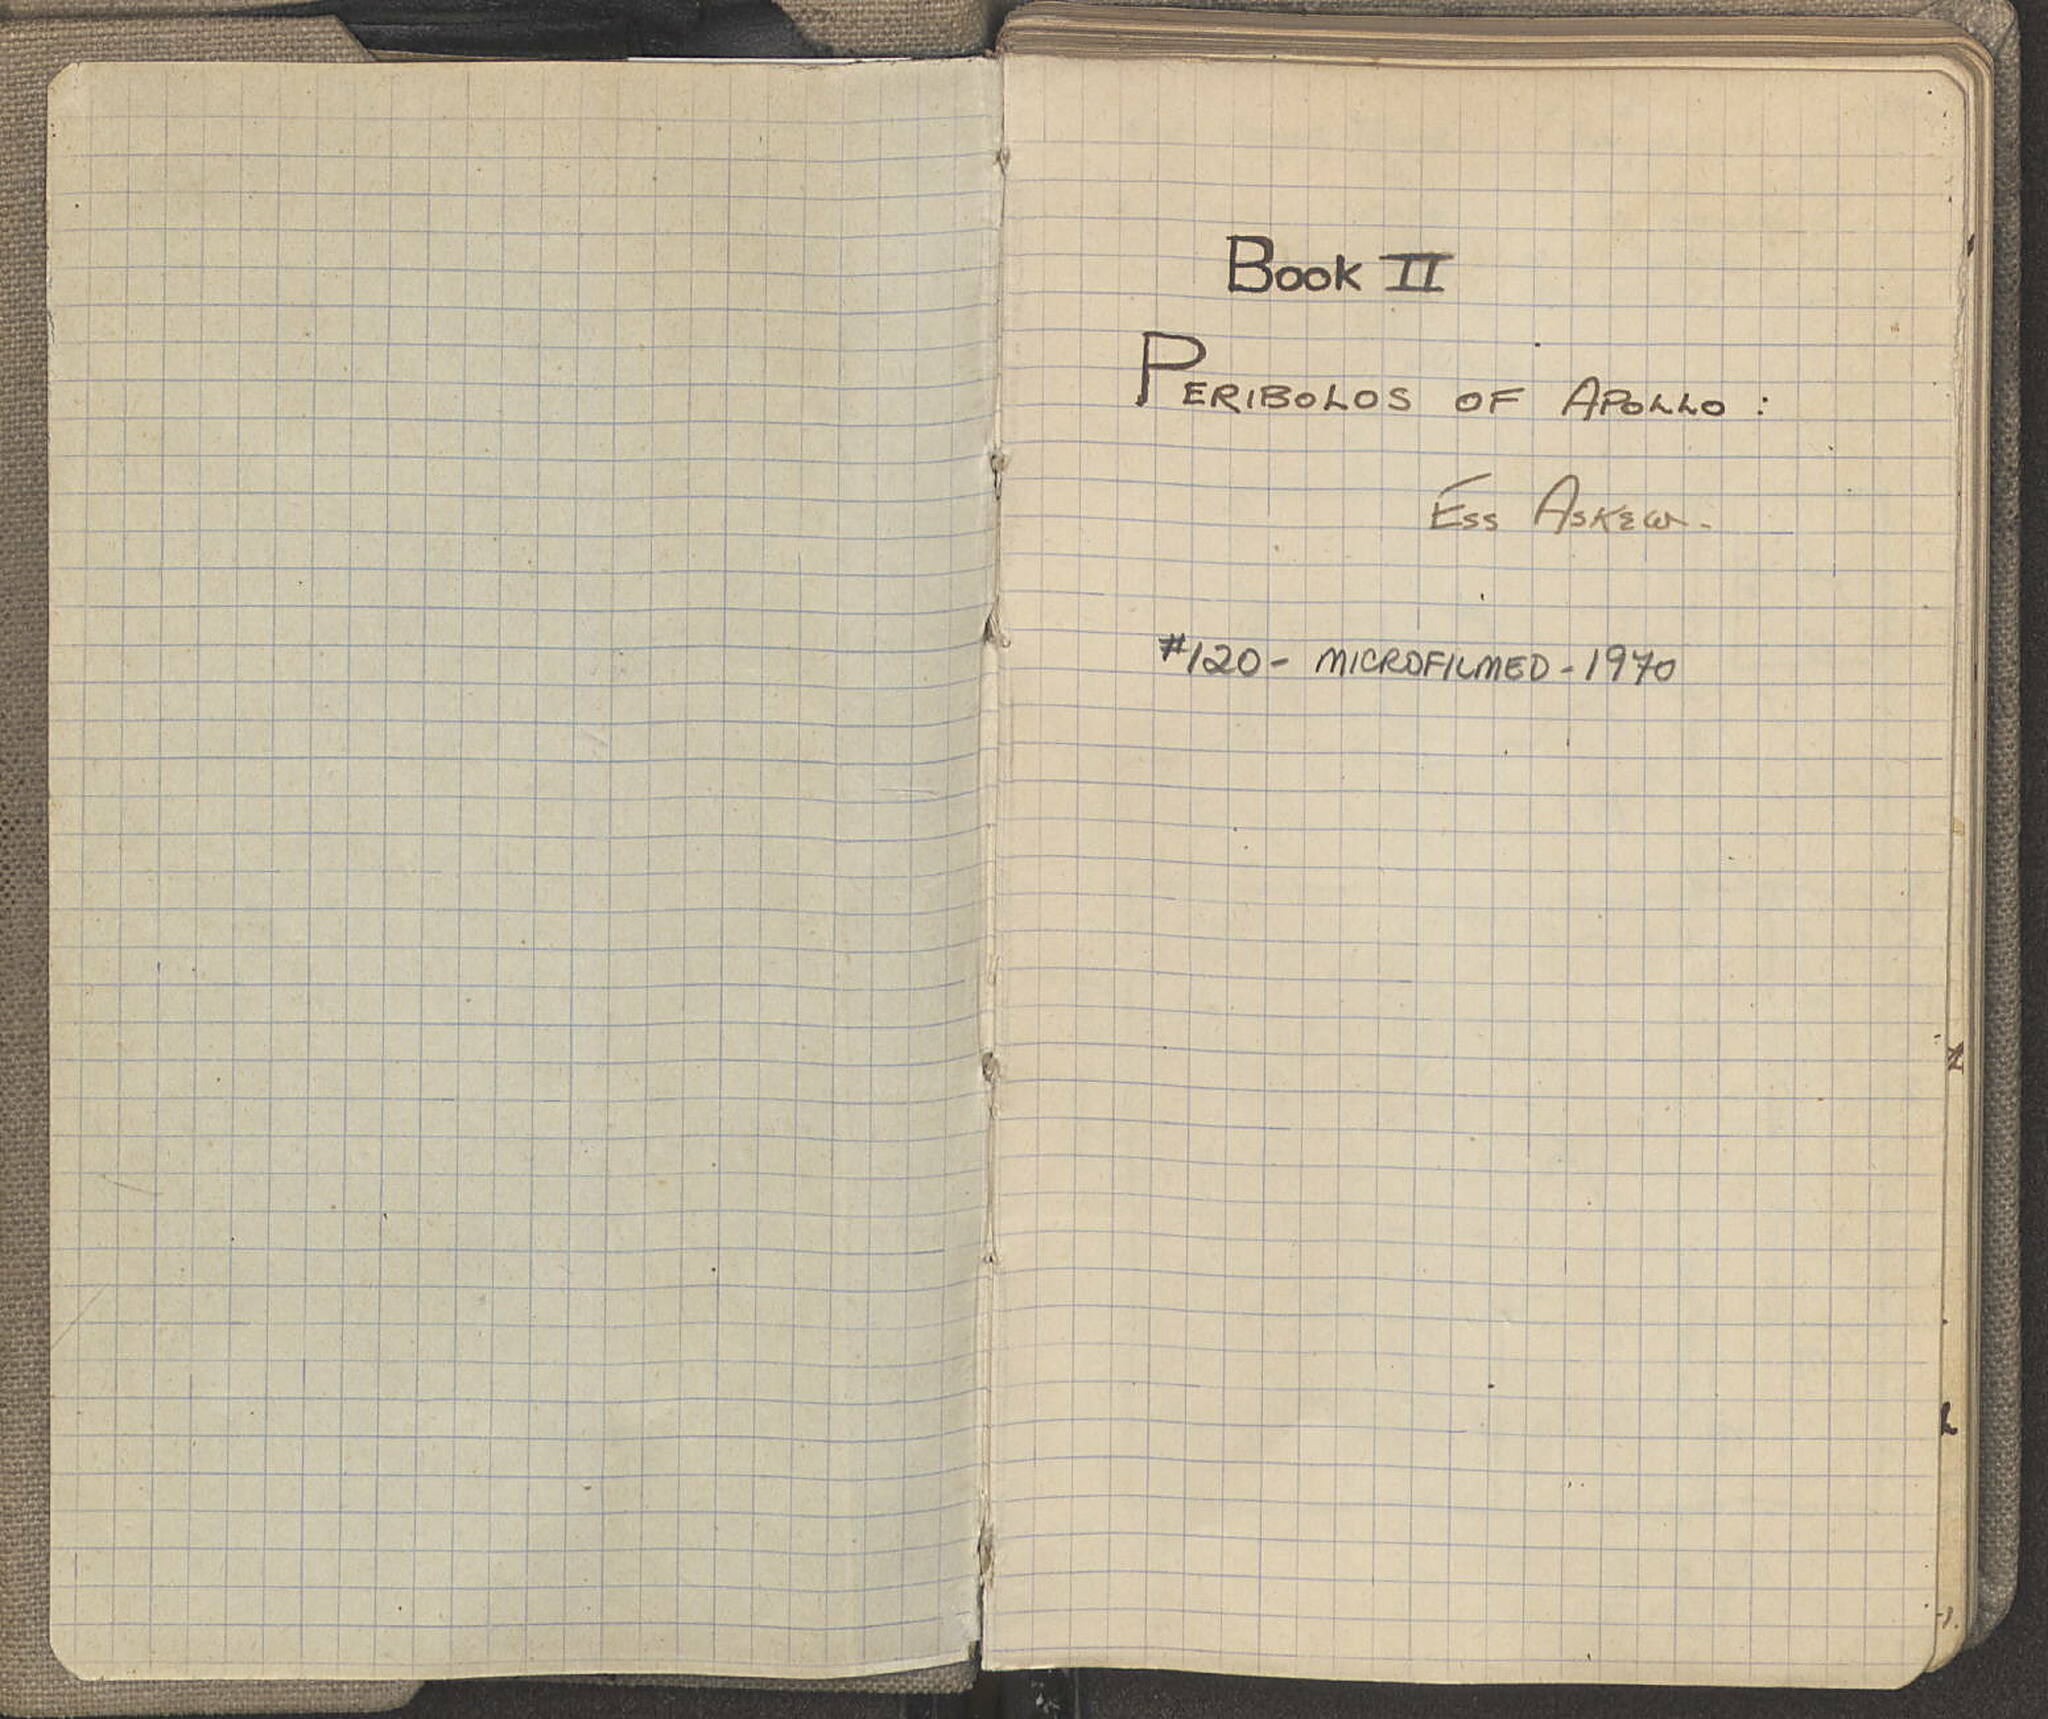 Book II
PERIBOLOS OF APOLLO :
Ess Askew.
#120 - MICROFILMED - 1970